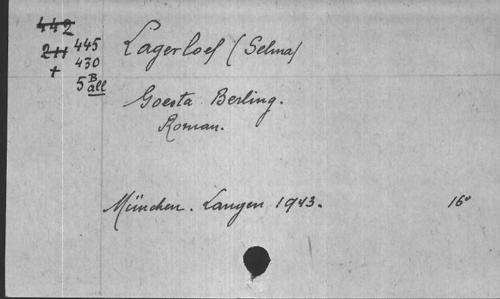 442
211 445
+ 430
5 B
all
Lagerloef (Selma)
Goesta Berling.
Roman.
München. Langen 1943. 16°